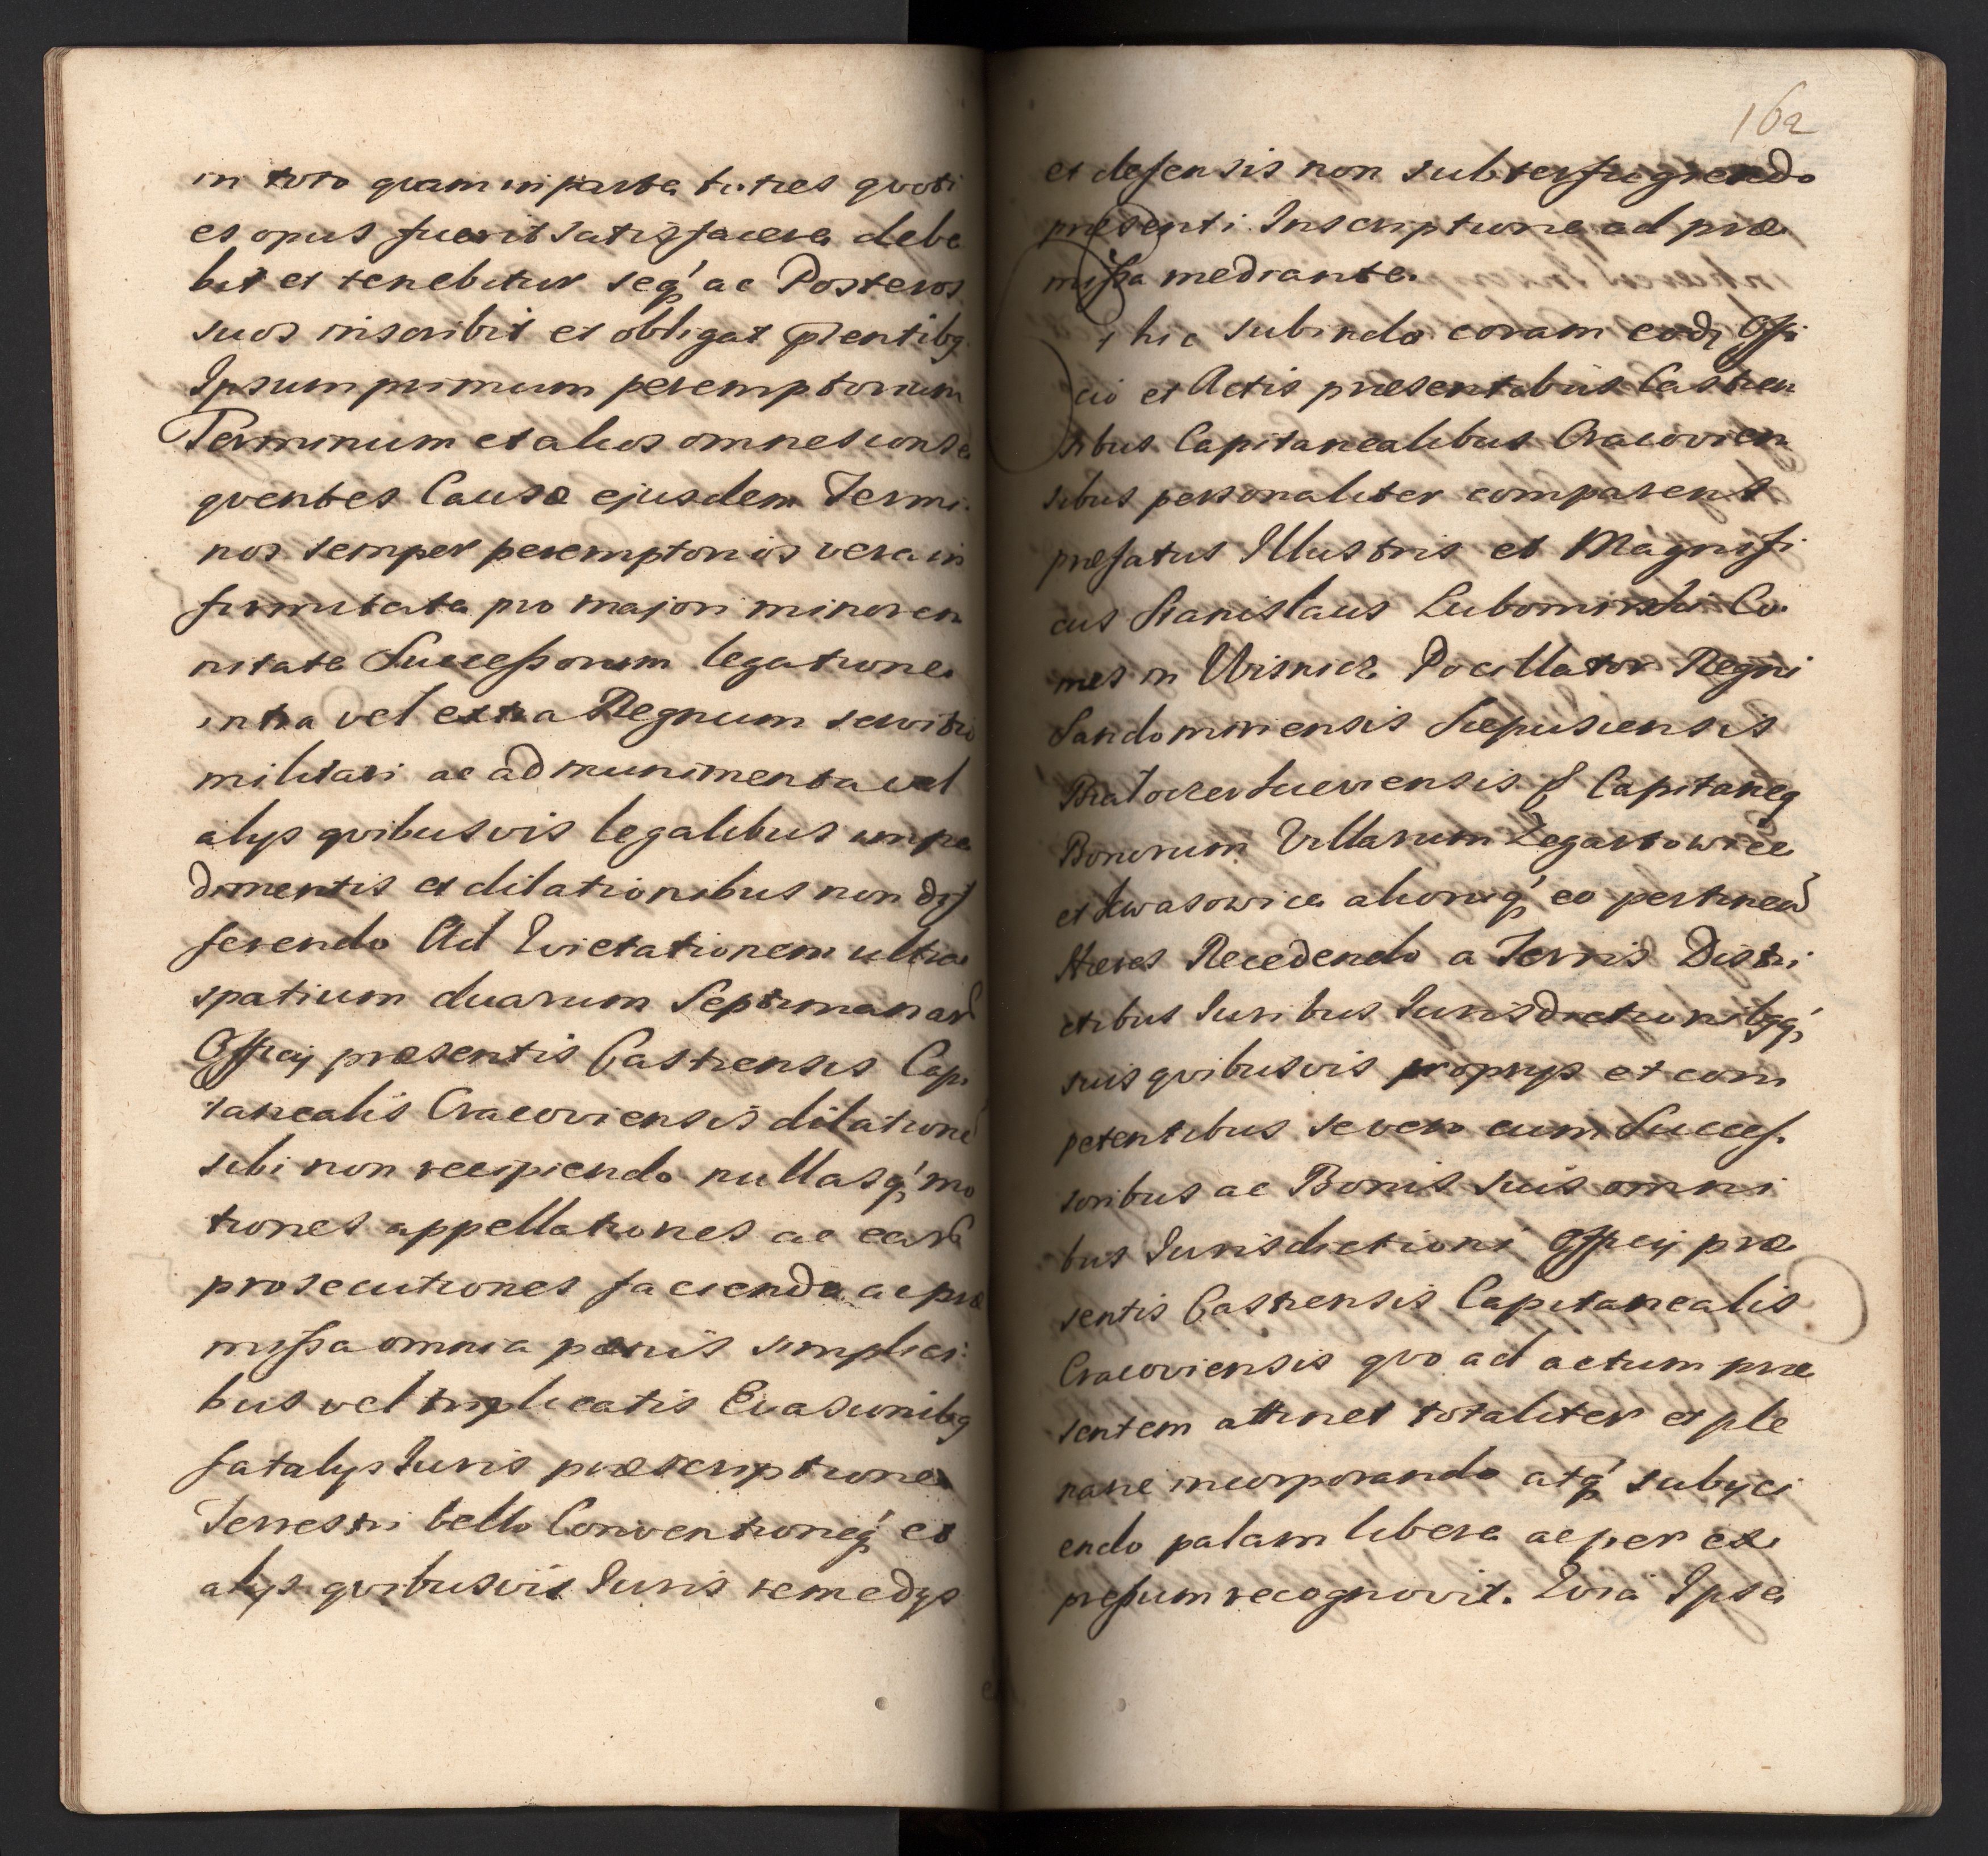 in toto quam in parte toties quoti
es opus fuerit satisfacere debe
bit et tenebitur seq́ ac Posteros
suos inscribit et obligat pꝛentibꝫ
Ipsum primum peremptorium
Terminum et alios omnes conse
quentes Causæ ejusdem Termi
nos semper peremptorios vera in
firmitate pro majori minoren
nitate Successorum legatione
intra vel extra Regnum servitio
militari ac ad munimenta vel
alys quibusvis legalibus impe
dimentis et dilationibus non dif
ferendo Ad Evictationem ultra
spatium duarum Septimanarũ
Officij præsentis Castrensis Capi
tanealis Cracoviensis dilationẽ
sibi non recipiendo nullasq́ mo
tiones appellationes ac earũ
prosecutiones faciendo ac præ
missa omnia pænis simplici
bus vel triplicatis Evasionibꝫ
fatalys Juris præscriptione
Terrestri bello Conventioneq́ et
alys quibusvis Juris remedys
162
et defensis non subterfugiendo
præsenti Inscriptione ad præ
missa mediante.
hic subinde coram eodꝫ Offi
cio et Actis præsentibus Castren
sibus Capitanealibus Cracovien
sibus personaliter comparens
præfatus Illustris et Magnifi
cus Stanislaus Lubomirski Co
mes in Wisnicz Pocillator Regni
Sandomiriensis Scepusiensis
Capitanꝫ
Bonorum Villarum Zegartowice
et Kwasowice aliorũq́ eo pertinen̄
Hæres Recedendo a Terris Distri
ctibus Juribus Jurisdictionibꝫq́
suis quibusvis proprys et com
petentibus se vero cum Succes
soribus ac Bonis suis omni
bus Jurisdictioni Officij præ
sentis Castrensis Capitanealis
Cracoviensis quo ad actum præ
sentem attinet totaliter et ple
narie incorporando atq́ subyci
endo palam libere ac per ex
pressum recognovit. Quia Ipse